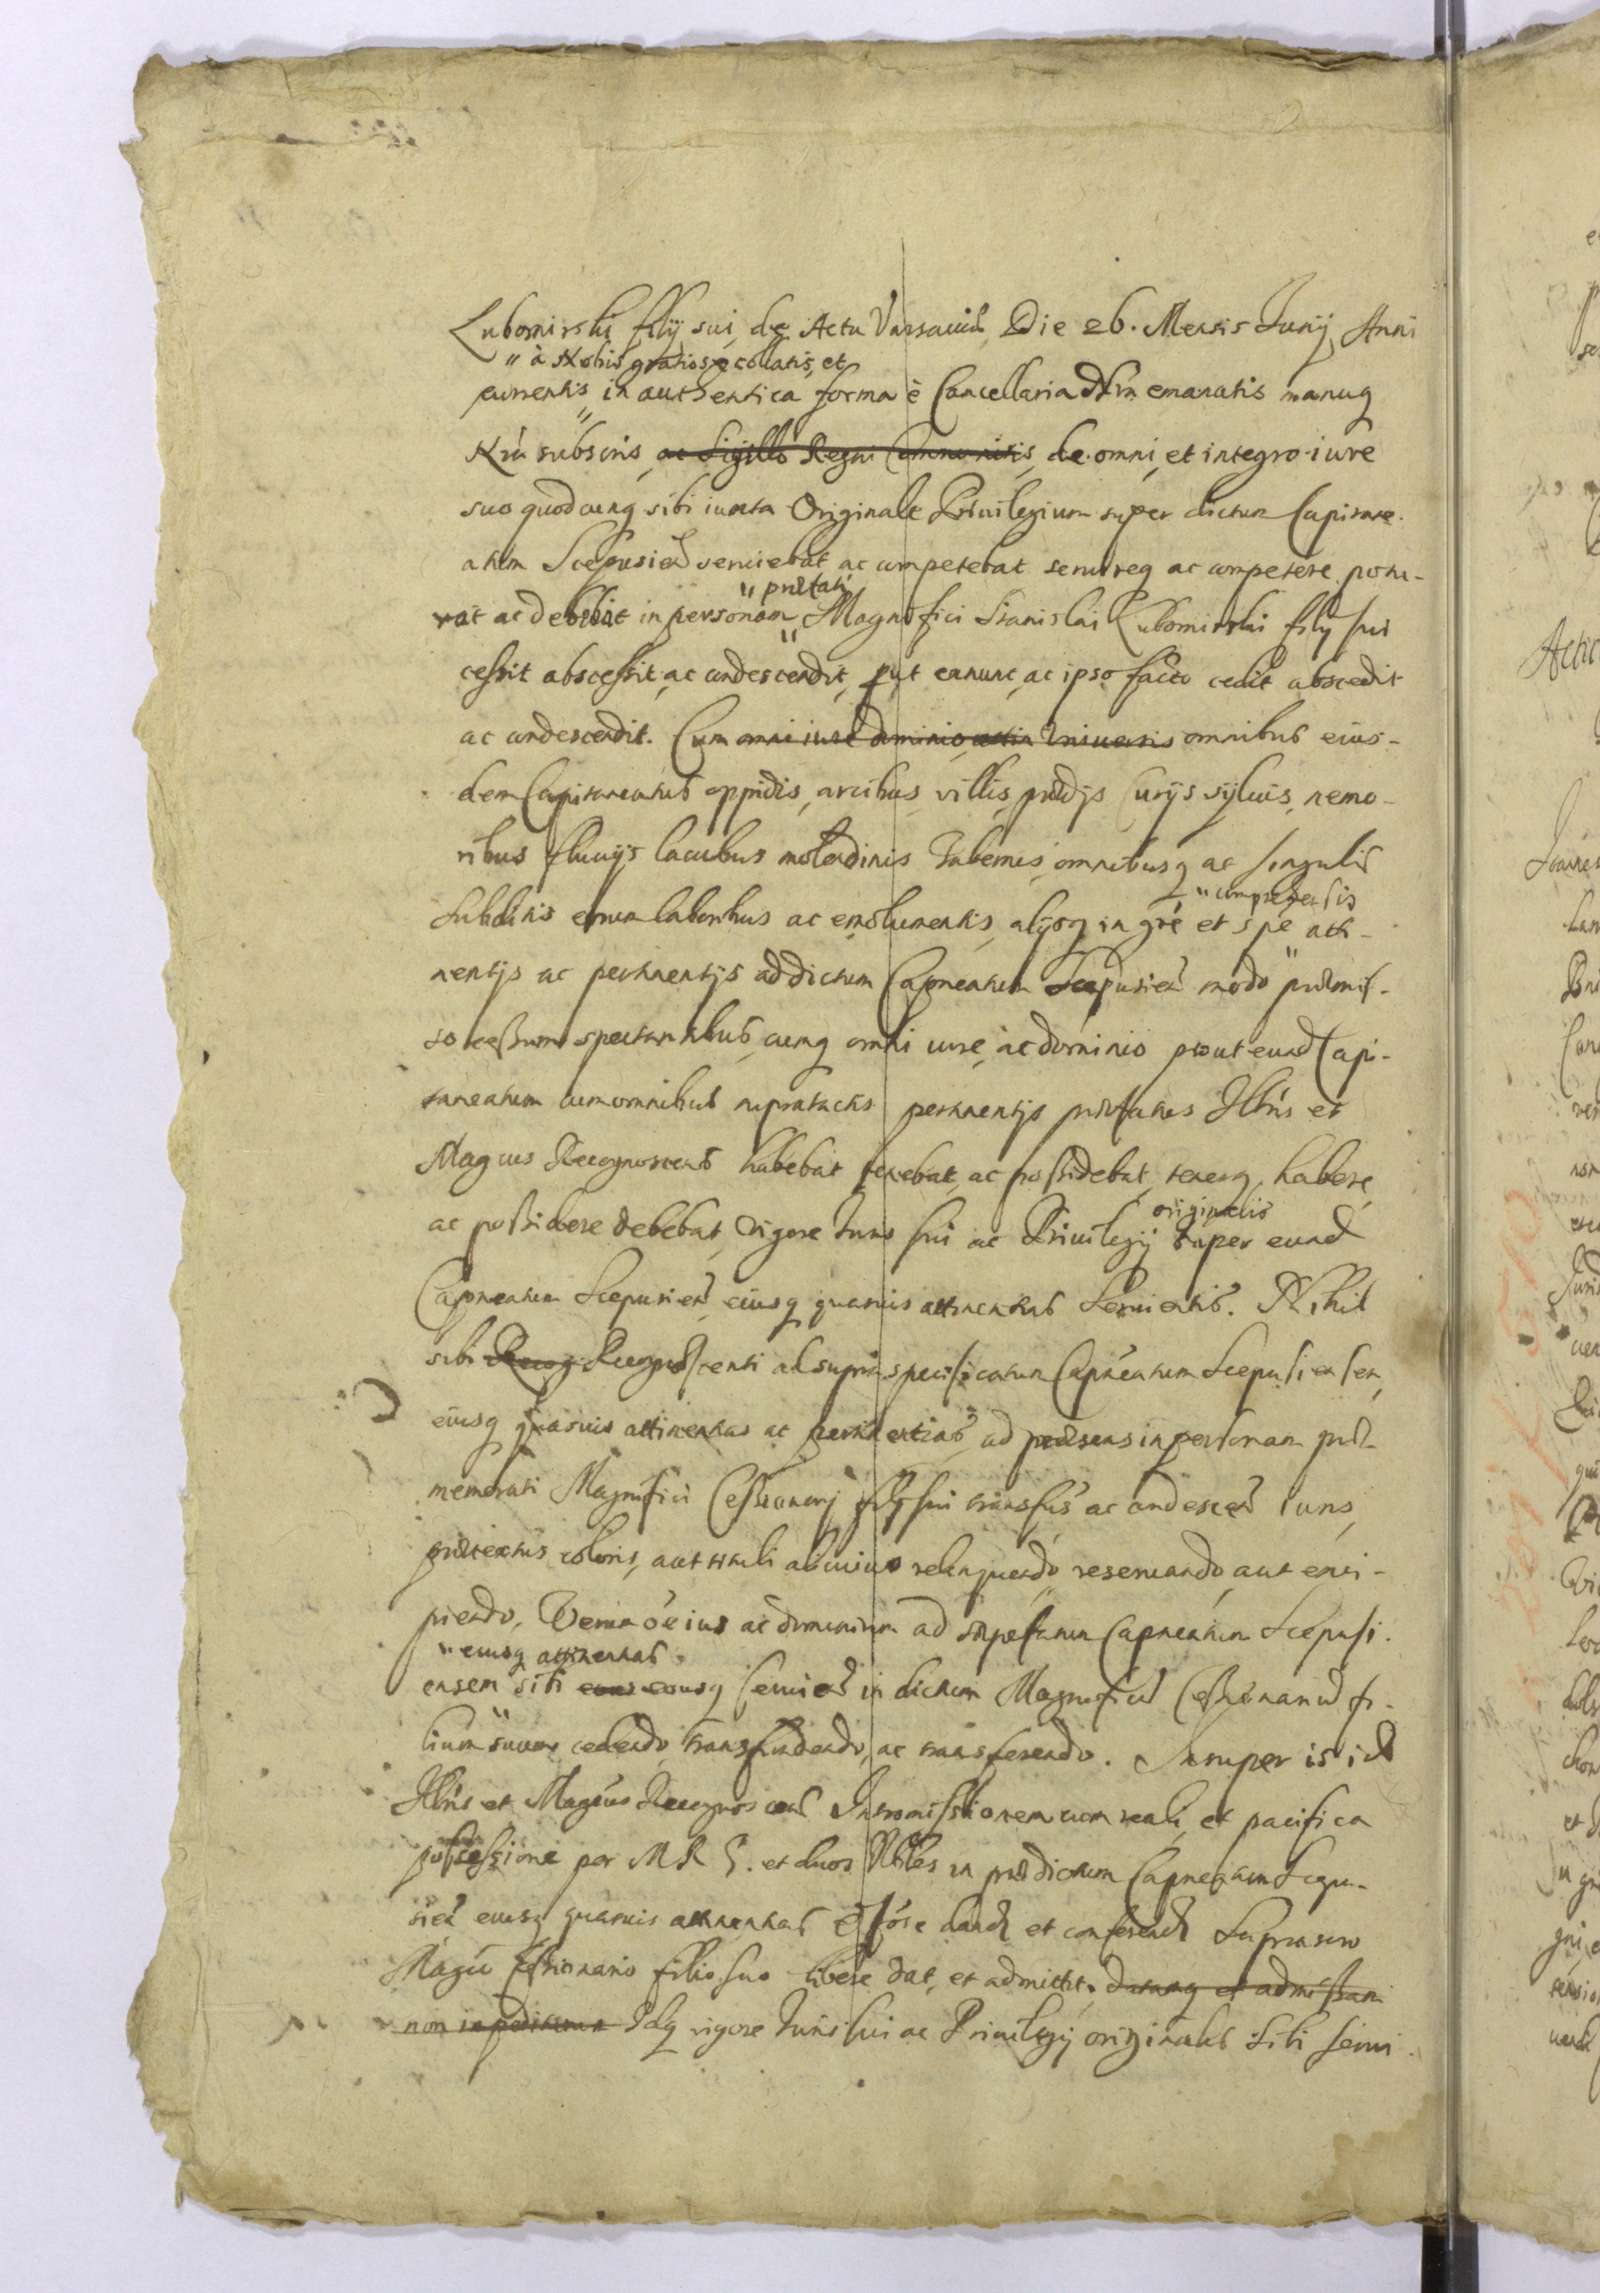 Lubomirski filij sui, de Actu Varsaviae Die 26. Mensis Junij Anni
" à Nobis gratiose collatis, et
currentis in authentica forma è Cancellaria Nrã emanatis manuq
Nrã subscris, ac Sigillo Regni Communitis, de omni, et integro iure
suo quodcunq sibi iuxta Originale Privilegium super dictum Capitane-
atum Scepusien serviebat ac competebat servireq ac competere potu-
" praefati
erat ac debebat in personam Magnifici Stanislai Lubomirski filij sui
cessit abscessit, ac condescendit, put exnunc, ac ipso facto cedit abscedit
ac condescendit. Cum omni iure dominio, universis omnibus eius-
dem Capitaneatus oppidis, arcibus, villis, praedijs Curijs sylvis, nemo-
ribus fluvijs lacubus molendinis Tabernis, omnibusq ac singulis
" comprehensis
Subditis eorum laboribus ac emolumentis, alijsq in gñe et spe atti-
nentijs ac pertinentijs ad dictum Capneatum Scepusien modo " praemis-
so cessum spectantibus, cumq omni iure, ac dominio prout eund Capi-
taneatum cum omnibus supratactis pertinentijs praefatus Illris et
Magcus Recognoscens habebat tenebat, ac possidebat, tenereq, habere,
originalis
ac possidere debebat, Vigore Juris sui ac Privilegij super eund
Capneatum Scepusien, eiusq quasvis attinentias Servientis. Nihil
sibi Recog Recognoscenti ad supra specificatum Capneatum Scepusiensem,
eiusq quasvis attinentias ac pertinentias, ad praesens in personam prae-
memorati Magnifici Cessionarij filij sui transfus ac condescen iuris,
praetextus coloris, aut tituli alicuius relinquendo reservando, aut exci-
piendo, Verum õe ius ac dominium ad saepefatum Capneatum Scepusi-
" eiusq attinentias
ensem sibi eiusq serviens in dictum Magnificum Cessionarium fi-
lium suum cedendo transfundendo, ac transferendo. Insuper is id
Illris et Magcus Recognoscens Intromissionem cum reali, et pacifica
possessione per M R G. et duos Nbiles in praedictum Capneatum Scepu-
sien eiusq quasvis attinentias dand et conferend Suprascro
Magco Cessionario filio suo libere dat, et admittit. daturq et admissam
non impediturum Idq vigore Juris sui ac Privilegij originalis Sibi servi-